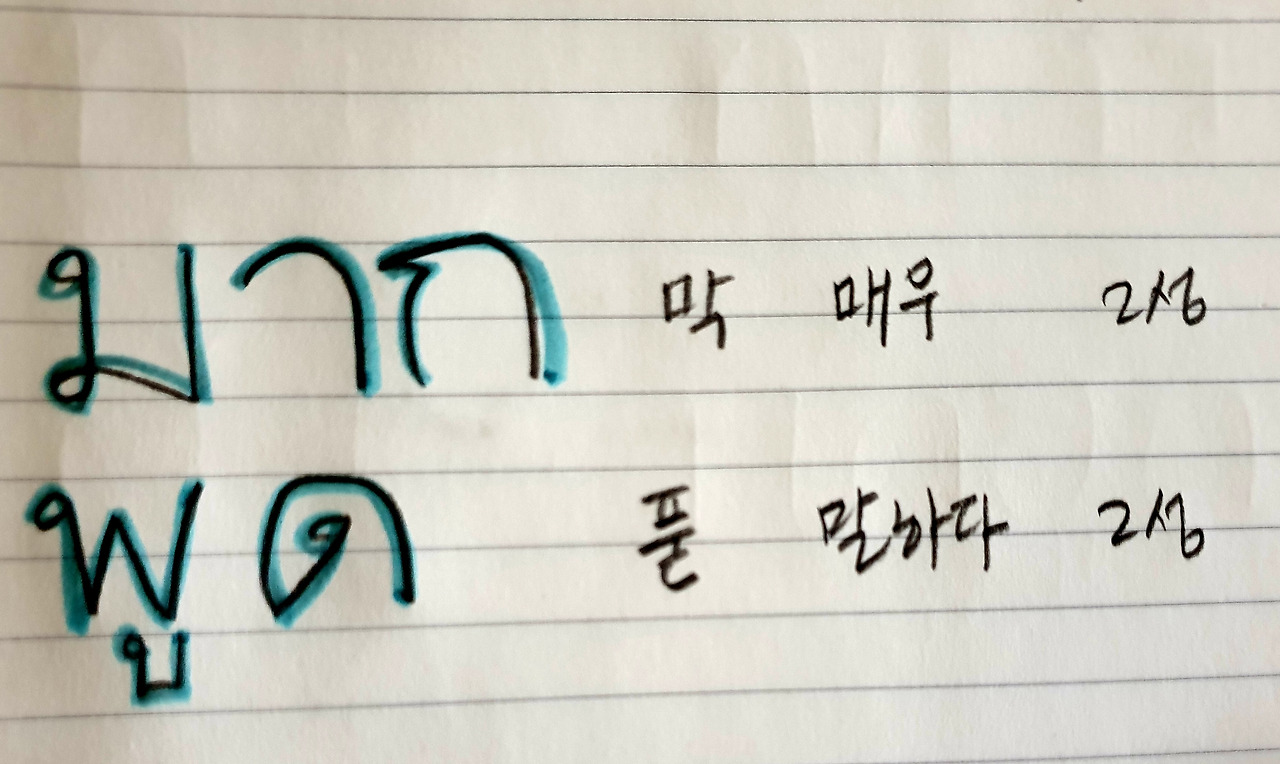 มาก 막 매우 2성
พูด 풀 말하다 2성